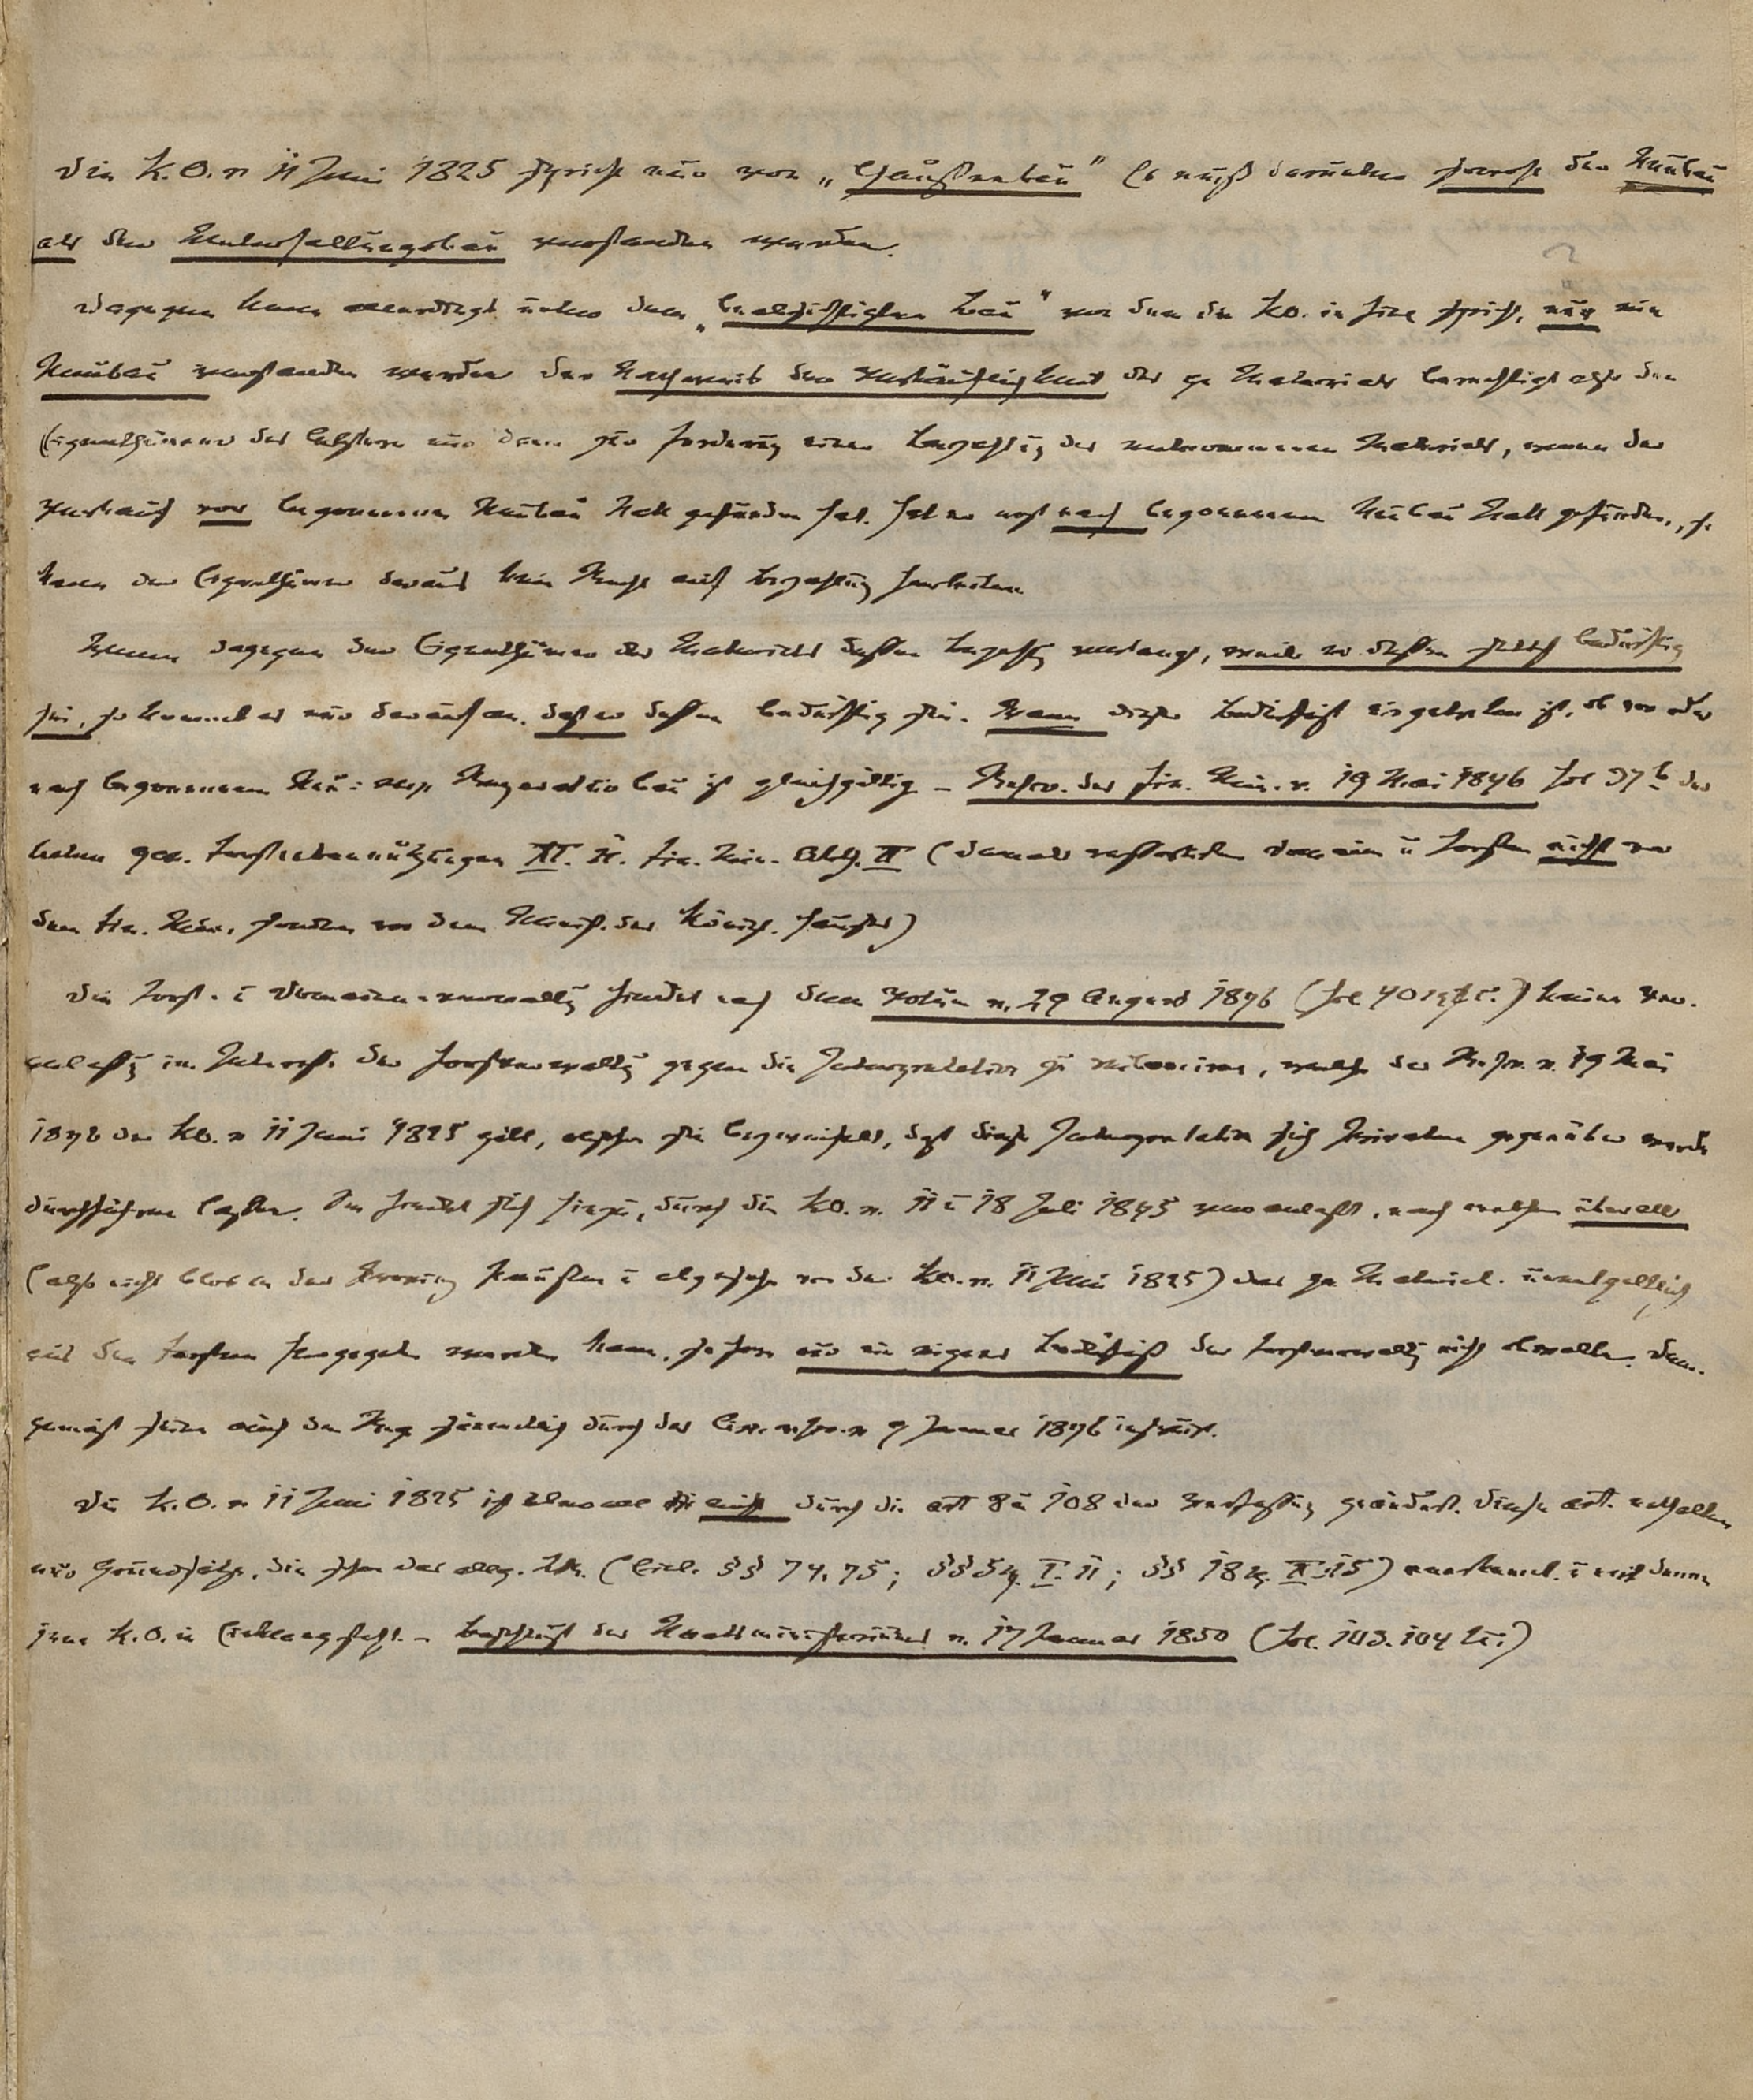 Die K.O. v 11 Juni 1825 spricht nur von „Chausseebau" Es muß darunter sowohl der Neubau
als der Unterhaltungsbau verstanden werden.
Dagegen kann allerdings unter dem „beabsichtigten Bau" von dem die KO. in fine spricht, nur ein
Neubau verstanden werden der Nachweis der Verkäuflichkeit des qu Materials berechtigt also den
Eigenthümer des letztern nur dann zur Forderung einer Bezahlung des entnommenen Materials, wenn der
Verkauf vor begonnenem Neubau Statt gefunden hat. Hat er erst nach begonnenem Neubau Statt gefunden, so
kann der Eigenthümer daraus kein Recht auf Bezahlung herleiten
Wenn dagegen der Eigenthümer des Materials dessen Bezahlg verlangt, weil er dessen selbst bedürftig
sei, so kommt es nur darauf an, daß er dessen bedürftig sei. Wann dieses Bedürfniß eingetreten ist, ob vor oder
nach begonnenem Neu- resp. Reparaturbau ist gleichgültig – Rescr. des Fin. Min. v. 19 Mai 1846 fol 37 b der
Acten gen. Forstnebennutzungen XI. 11. Fin. Min. Abth. II (damals ressortirten Domainen u Forsten nicht von
dem Fin. Min. sondern von dem Minist. des Königl. Hauses)
Die Forst- u Domainen-verwaltg findet nach dem Votum v. 29 August 1846 (fol 40 ) keine Ver-
anlassg im Interesse der Forstverwaltg gegen die Interpretation zu , welche das Rescr. v. 19 Mai
1846 der KO. v 11 Juni 1825 gibt, obschon sie bezweifelt, daß diese Interpretation sich Privaten gegenüber werde
durchführen lassen. Sie findet sich hierzu, durch die KO. v. 11 u 18 Juli 1845 veranlaßt, nach welchen überall
(also nicht blos in der Provinz Preußen u abgesehen von der KO. v. 11 Juni 1825) das qu Material. unentgeltlich
aus den Forsten hergegeben werden kann, sofern nur ein eigenes Bedürfniß der Forstverwaltg nicht obwalte. Dem-
gemäß seien auch die Reg. sämmtlich durch das Circ. rescr. v 9 Januar 1846 instruirt.
Die K.O. v 11 Juni 1825 ist nicht durch die Art 8 u 108 der Verfassung geändert. Diese Art. enthalten
nur Grundsätze, die schon das allg. LR. (Einl. §§ 74. 75; §§ 54. I. 11; §§ 18 II. 15) anerkannt. u mit denen
jene K.O. in Einklang steht. – Beschluß des Staatsministeriums v. 17 Januar 1850 (fol. 103. 104 )